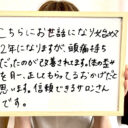 こちらにお世話になり始めて
2年になりますが、頭痛持ち
だったのが改善されます。体の歪み
を
正してもらっておかげだと
思います。信頼できるサロンさん
です。